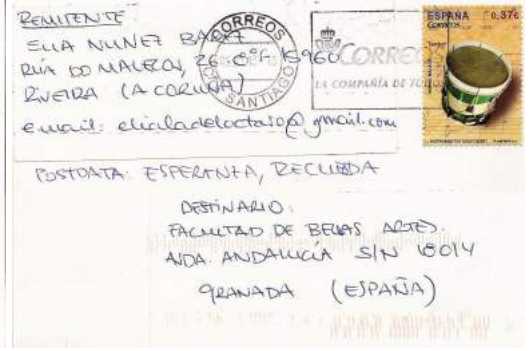 REMITENTE
ELIA NUNEZ
RUA DO MALECON, 26 15960
RIVEIRA (A CORUÑA)
email: @gmail.com
CORREOS
SANTIAGO
CORREOS
LA COMPAÑÍA DE TODOS
ESPAÑA 0,37€
CORREOS
Tambor
POSTDATA: ESPERANZA, RECUERDA
DESTINARIO:
FACULTAD DE BELLAS ARTES.
AVDA. ANDALUCÍA S/N 18014
GRANADA (ESPAÑA)